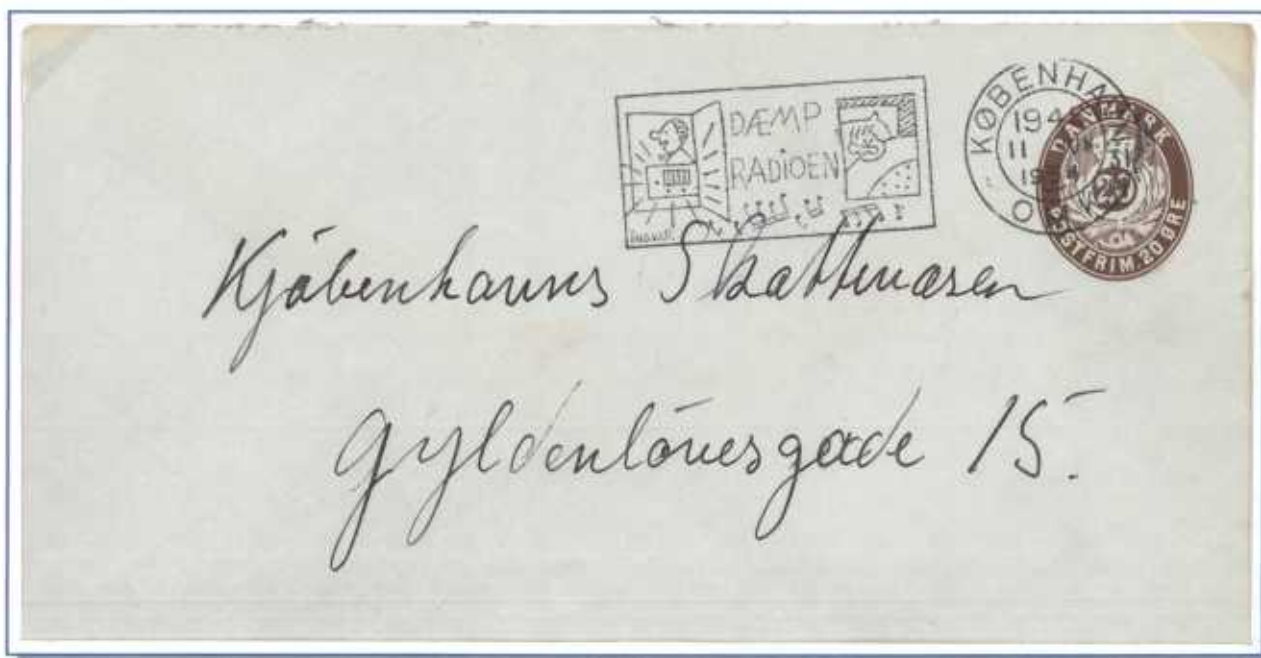 DÆMP
RADIOEN
KØBENHA
194
11
19
O
DANMARK
POSTFRIM. 20 ØRE
Kjøbenhavns Skattevæsen
Gyldenløvesgade 15.